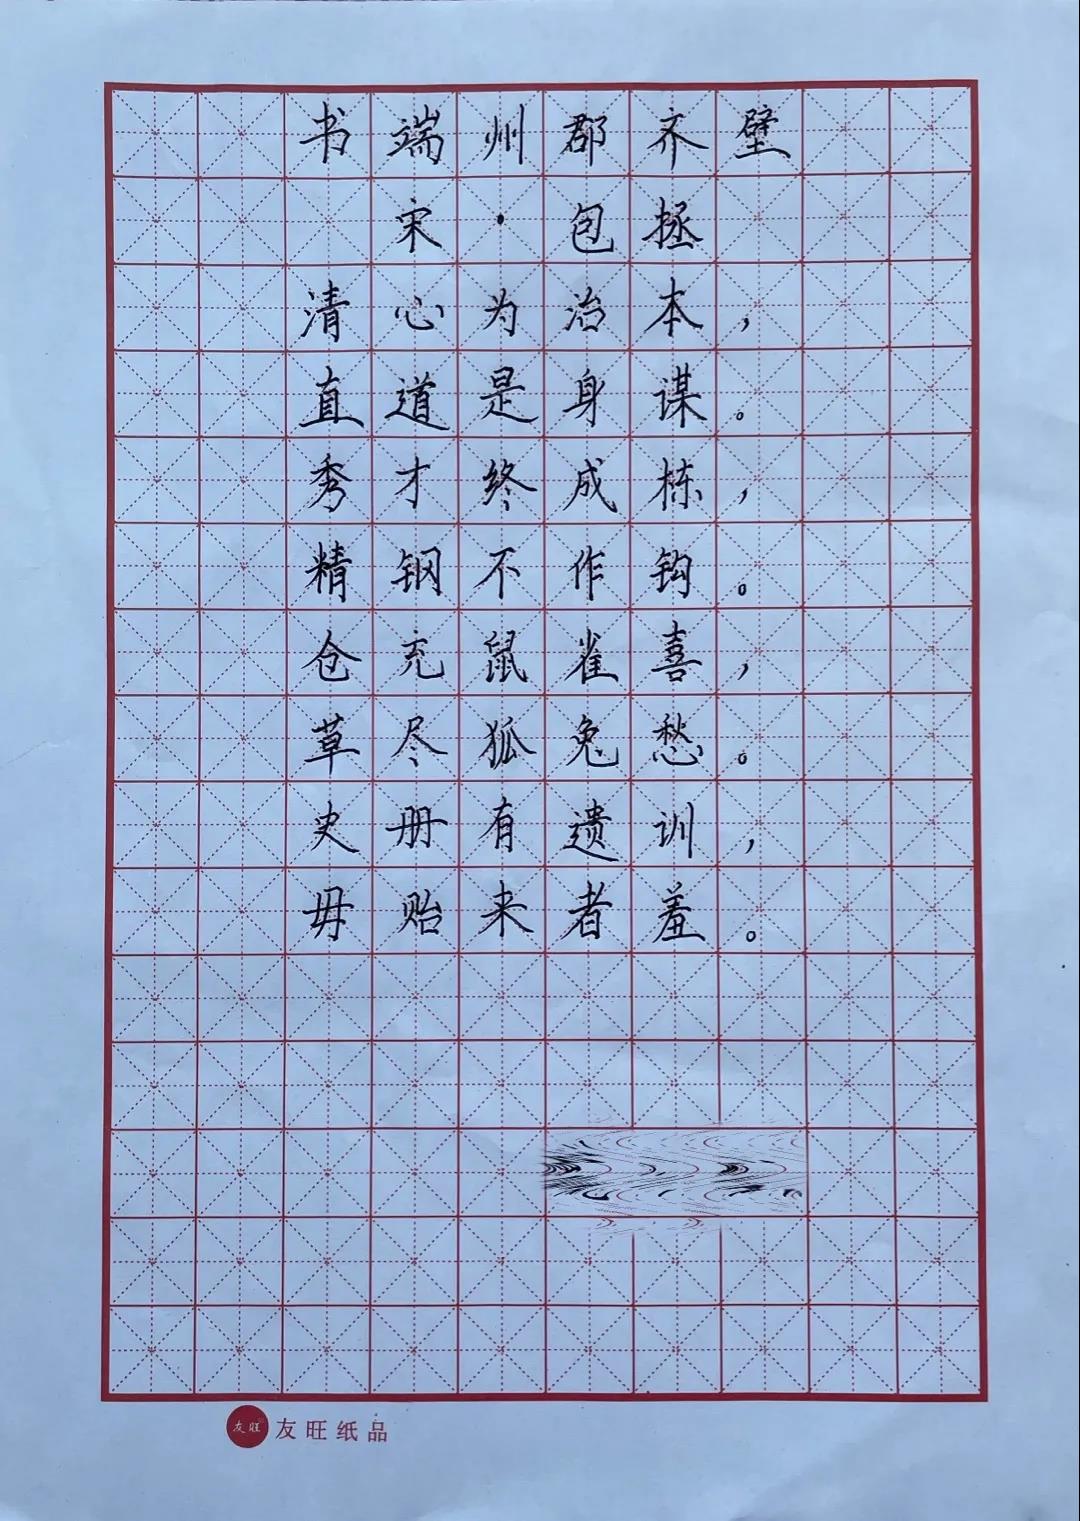 书端州郡齐壁
宋·包拯
清心为治本，
直道是身谋。
秀才终成栋，
精钢不作钩。
仓充鼠雀喜，
草尽狐兔愁。
史册有遗训，
毋贻来者羞。
友旺 友旺纸品